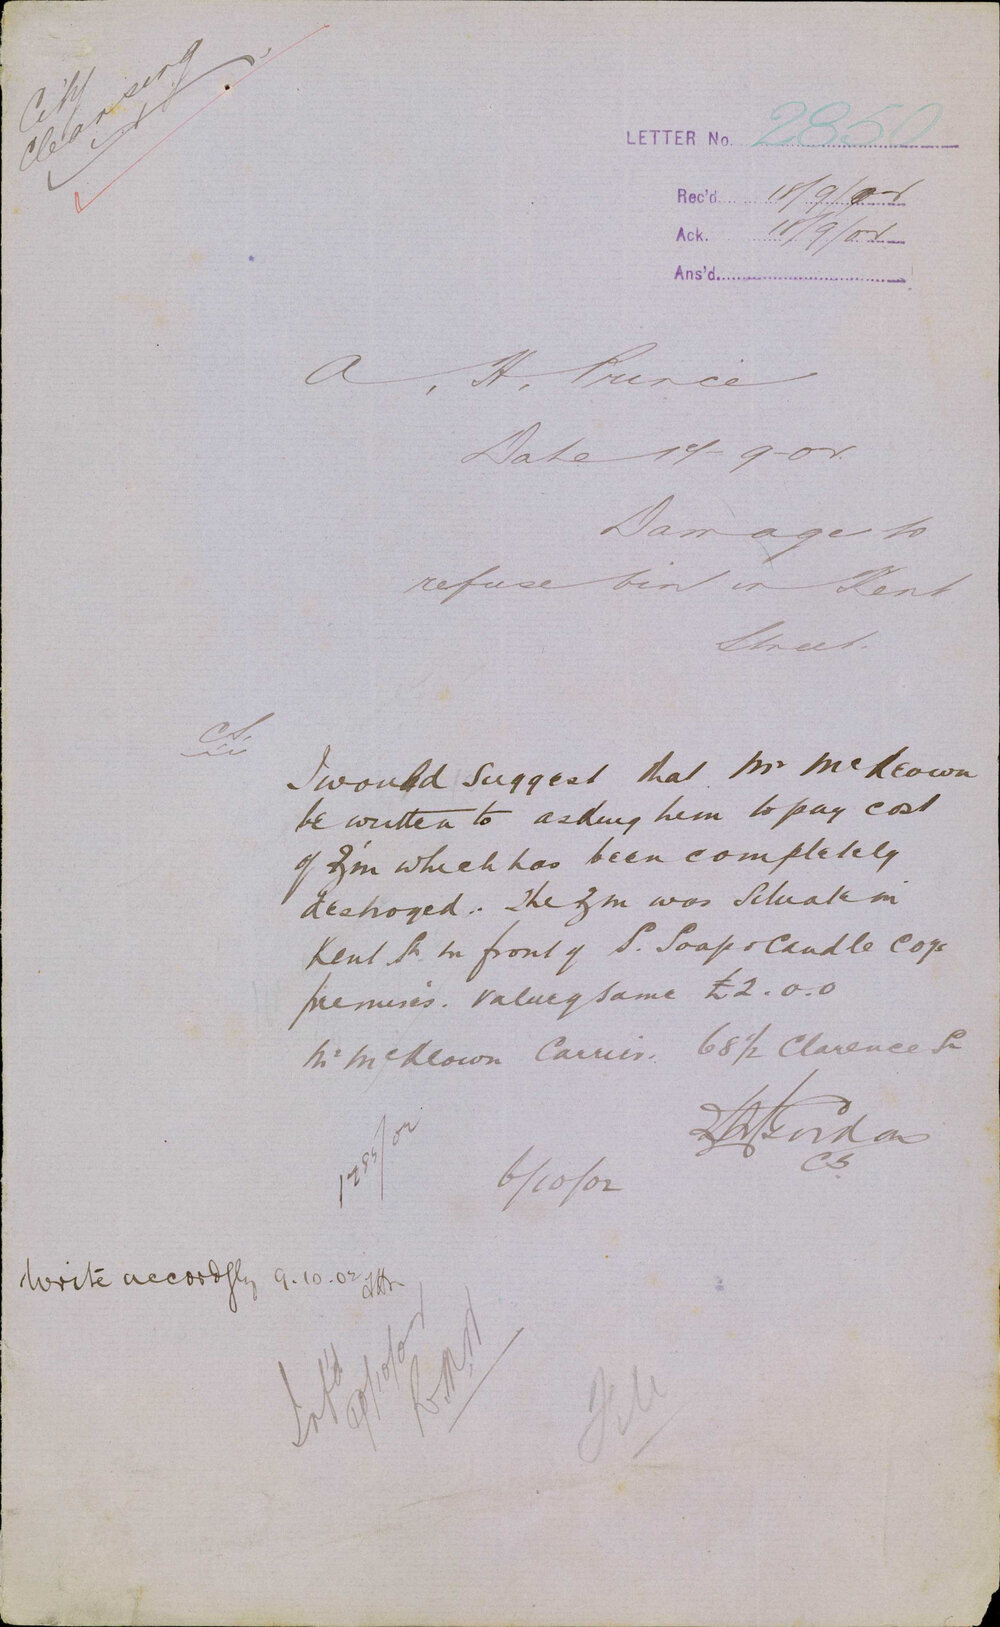 City
Cleansing
LETTER No. 2850
Rec'd 18/9/02
Ack. 18/9/02
Ans'd.
A. H. Prince
Date 17-9-02
Damage to
refuse bin in Kent
Street.
C.S.
I would suggest that Mr McKeown
be written to asking him to pay cost
of Bin which has been completely
destroyed. The Bin was situate in
Kent St in front of S. Soap & Candle Coys
premises. Value of same £2.0.0
Mr McKeown Carrier. 68½ Clarence St
Gordon
CS.
1785/02
6/10/02
Write accordgly 9.10.02
Inf'd
/10/02
File